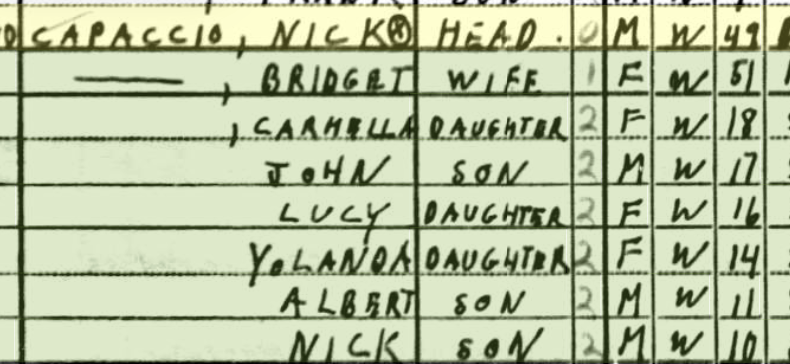 CAPACCIO, NICK ⓧ HEAD. 0 M W 49
——, BRIDGET WIFE 1 F W 51
, CARMELLA DAUGHTER 2 F W 18
JOHN SON 2 M W 17
LUCY DAUGHTER 2 F W 16
YOLANDA DAUGHTER 2 F W 14
ALBERT SON 2 M W 11
NICK SON 2 M W 10